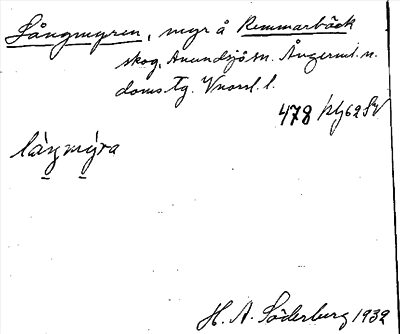 Långmyren, myr å Remmarbäck
skog, Anundsjö sn. Ångerml. n.
doms. Tg. Vnorrl. l.
478
långmýra
H. A. Söderberg 1932